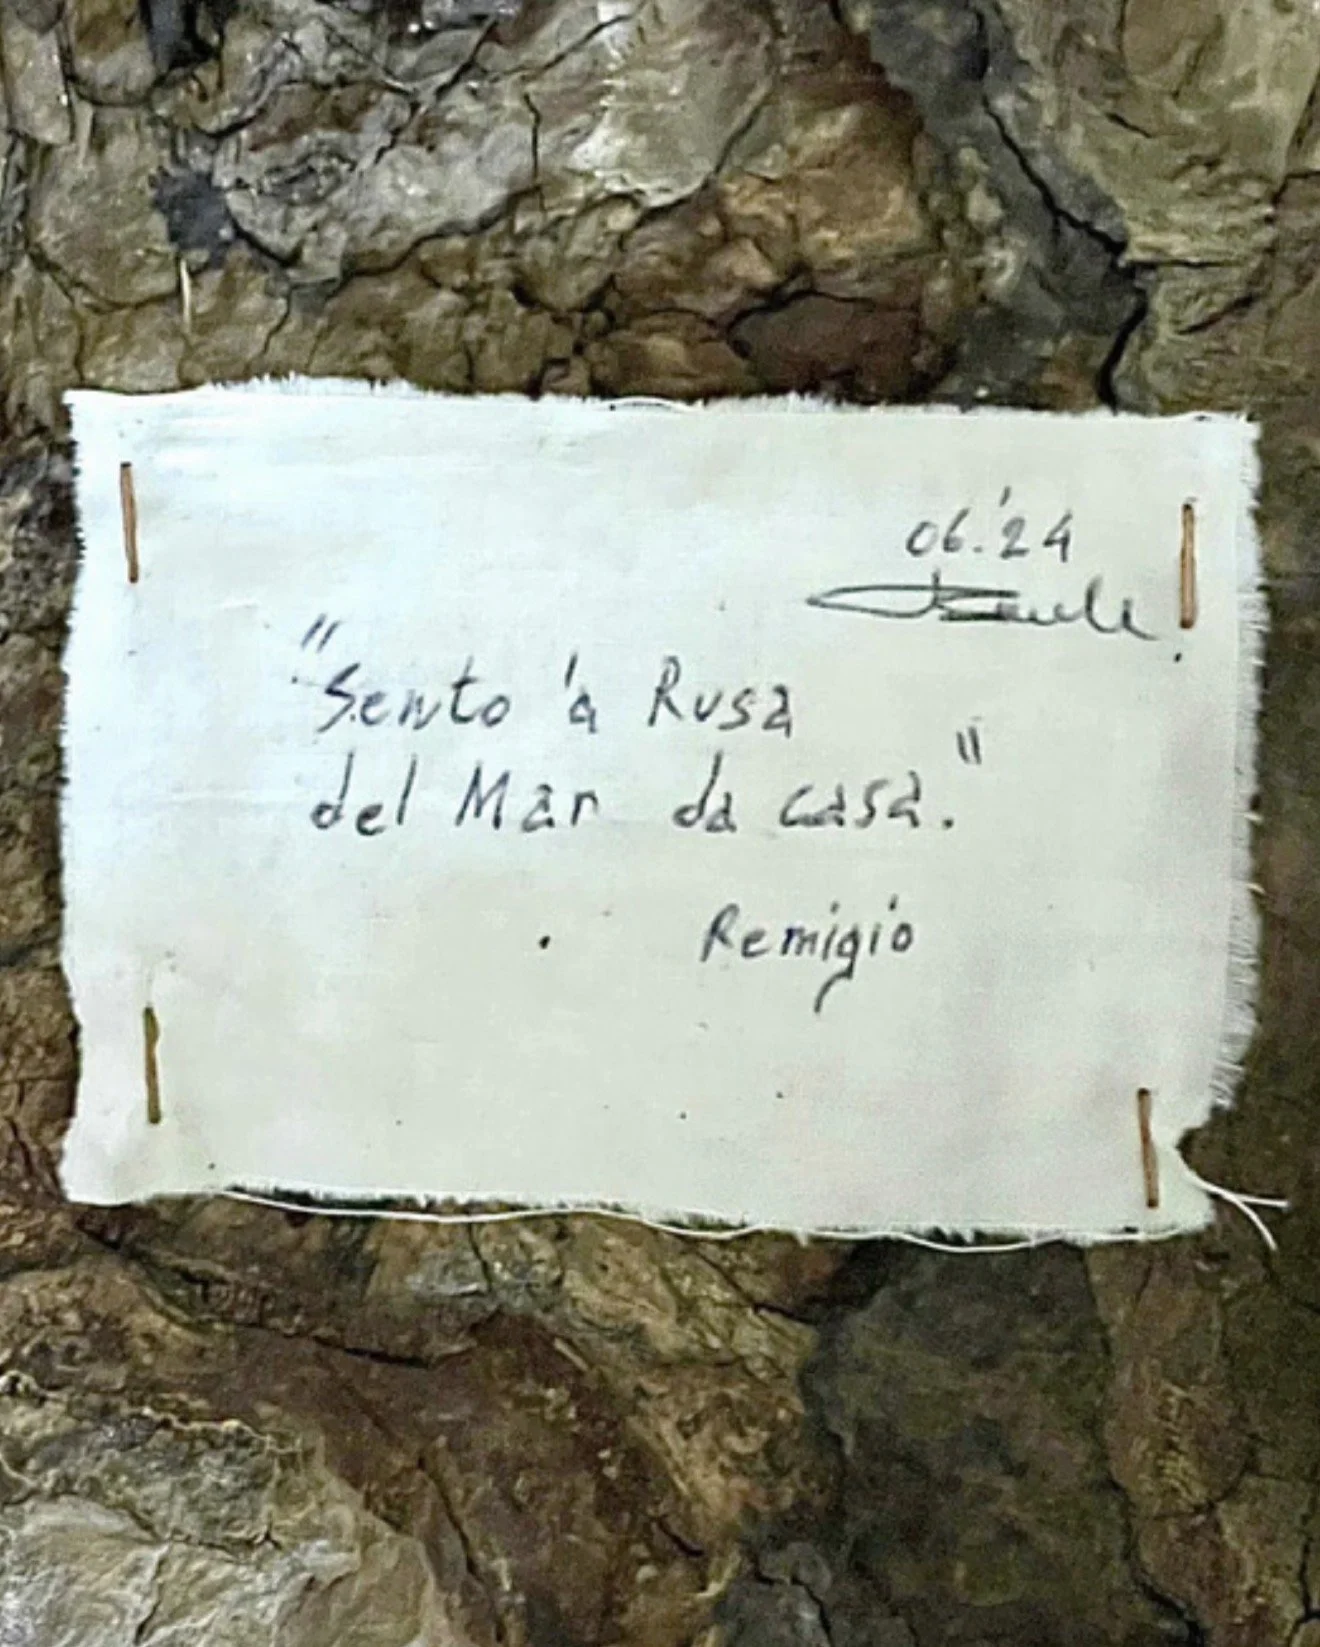 06.'24
"Sento 'a Rusa
del Mar da casa."
Remigio